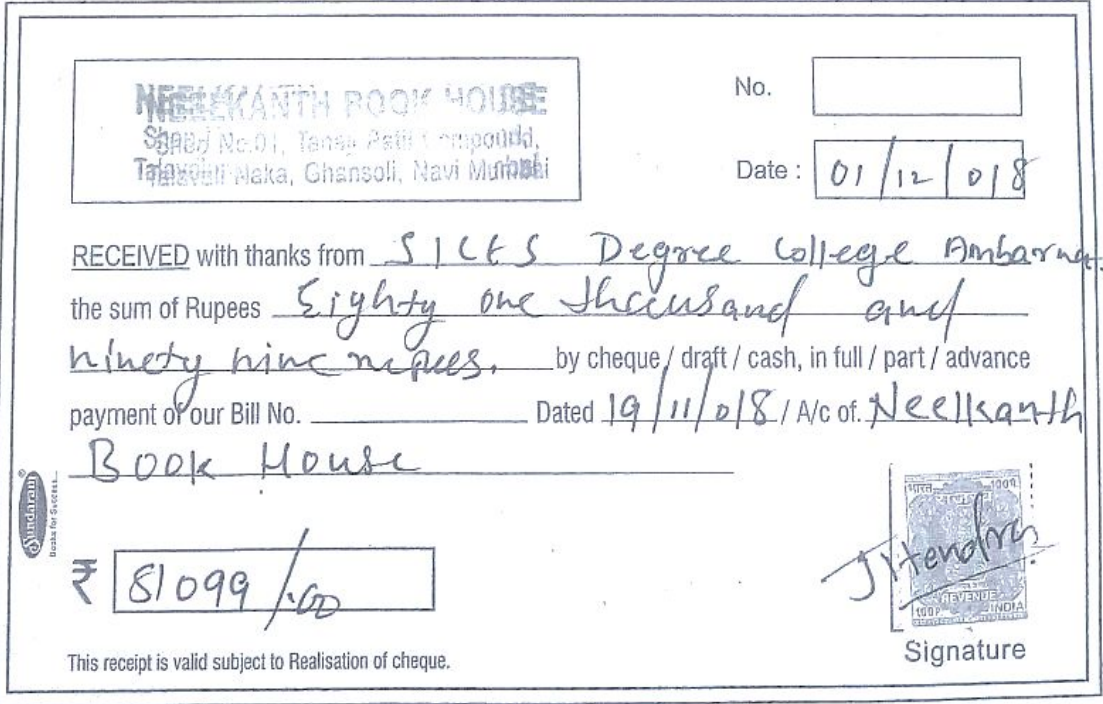 NEELKANTH BOOK HOUSE
Shop No.01, Tanaji Patil Compound,
Talavali Naka, Ghansoli, Navi Mumbai
No.
Date : 01/12/018
RECEIVED with thanks from SICES Degree College Ambarna
the sum of Rupees Eighty one thousand and
ninety nine rupees. by cheque / draft / cash, in full / part / advance
payment of our Bill No. Dated 19/11/018 / A/c of. Neelkanth
Book House
Sundaram®
Books for Success...
₹ 81099/.00
भारत 100प
Jitendra
REVENUE
100P INDIA
Signature
This receipt is valid subject to Realisation of cheque.